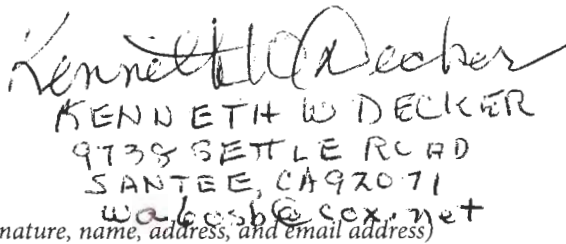 Kenneth W Decker
KENNETH W DECKER
9738 SETTLE ROAD
SANTEE, CA 92071
@cox.net
nature, name, address, and email address)